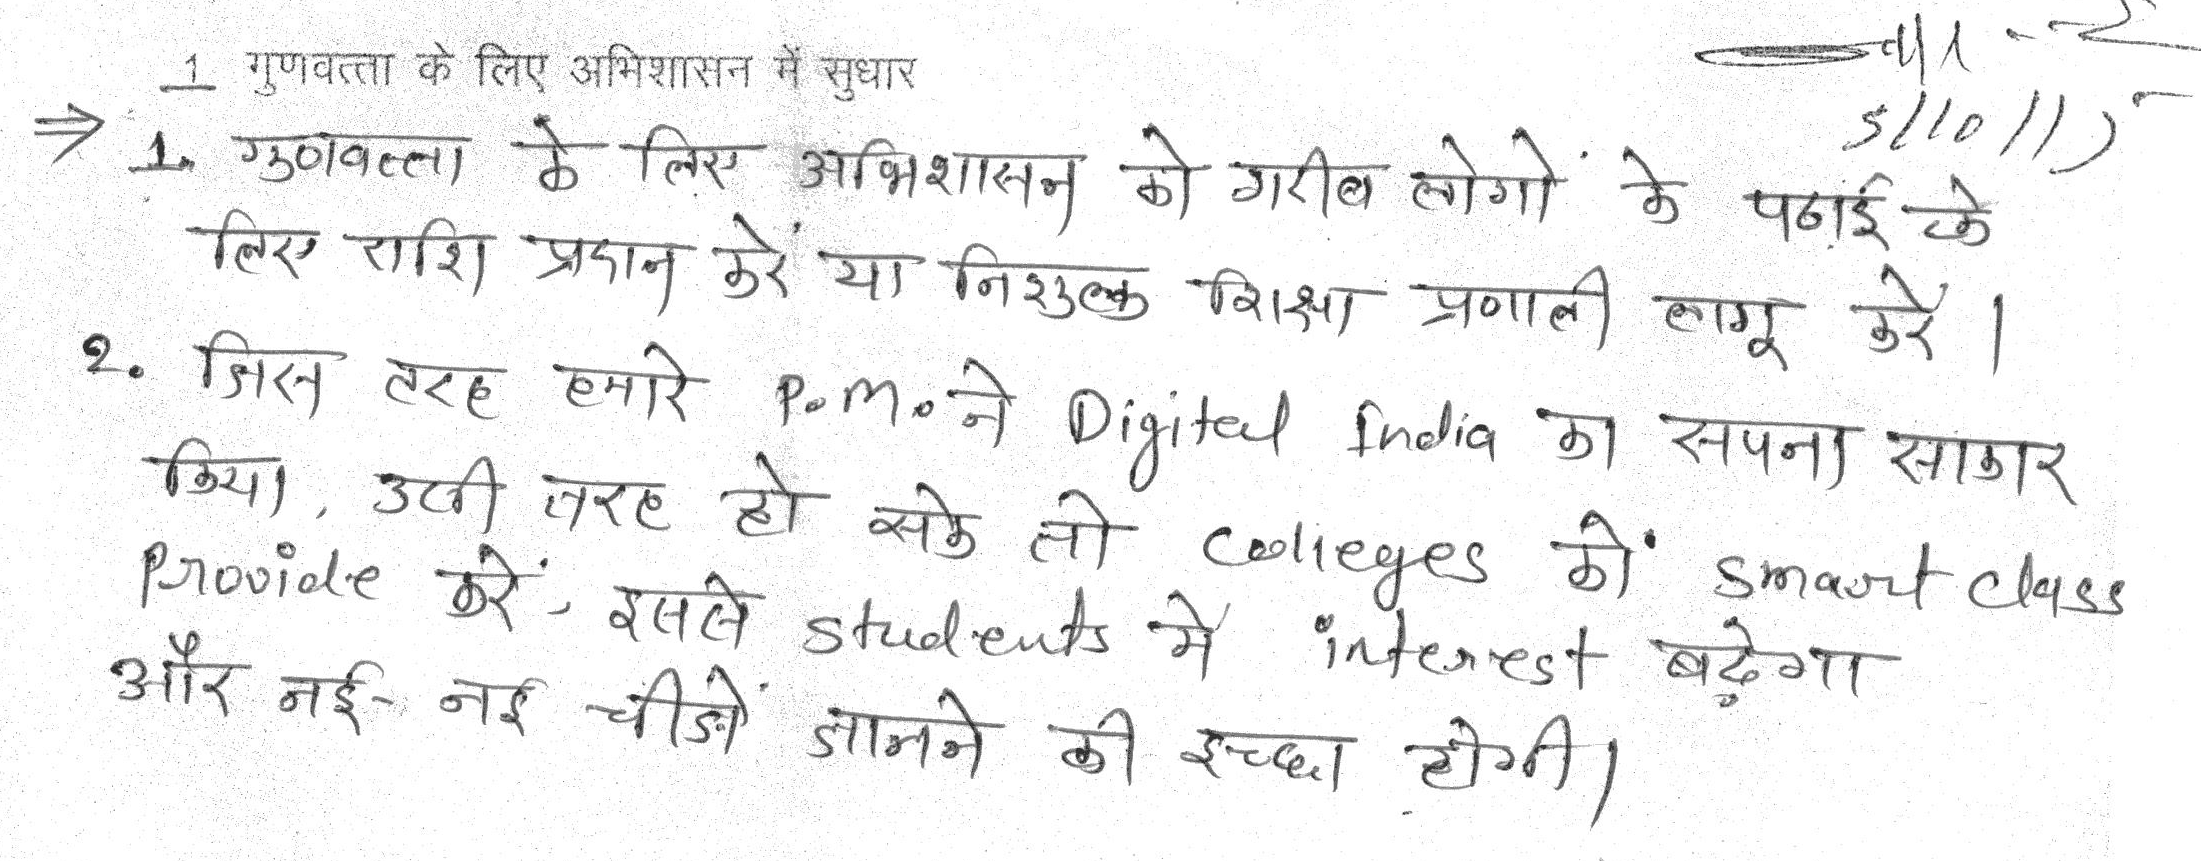 1 गुणवत्ता के लिए अभिशासन में सुधार
5/10/15
⇒ 1. गुणवत्ता के लिए अभिशासन को गरीब लोगों के पढाई के
लिए राशि प्रदान करें या निशुल्क शिक्षा प्रणाली लागू करें।
2. जिस तरह हमारे P.M. ने Digital India का सपना साकार
किया, उसी तरह हो सके तो colleges को smart class
Provide करें, इससे students में interest बढ़ेगा
और नई-नई चीजें जानने की इच्छा होगी।